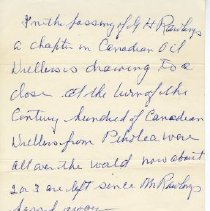 In the passing of G H Rawlings
a chapter in Canadian Oil
Drillers is drawing to a
close at the turn of the
Century hundred of Canadian
Drillers from Petrolea were
all over the world now about
2 or 3 are left since Mr Rawlings
passed away